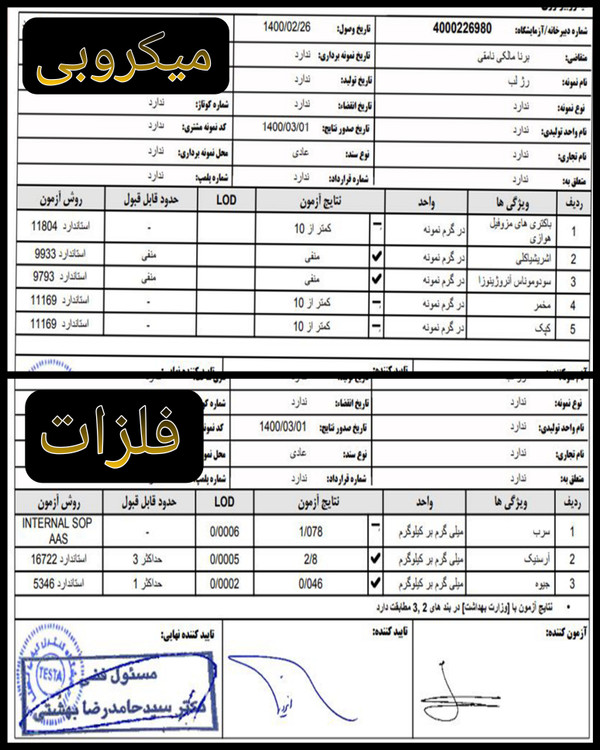 میکروبی
شماره دبیرخانه/آزمایشگاه: 4000226980
تاریخ وصول: 1400/02/26
متقاضی: برنا مالکی نامقی
تاریخ نمونه برداری: ندارد
نام نمونه: رژ لب
تاریخ تولید: ندارد
نوع نمونه: ندارد
تاریخ انقضاء: ندارد
شماره کوتاژ: ندارد
نام واحد تولیدی: ندارد
تاریخ صدور نتایج: 1400/03/01
کد نمونه مشتری: ندارد
نام تجاری: ندارد
نوع سند: عادی
محل نمونه برداری: ندارد
متعلق به: ندارد
شماره قرارداد: ندارد
شماره پلمپ: ندارد
ردیف ویژگی ها واحد نتایج آزمون LOD حدود قابل قبول روش آزمون
1 باکتری های مزوفیل هوازی در گرم نمونه - کمتر از 10 - استاندارد 11804
2 اشریشیاکلی در گرم نمونه ✔ منفی منفی استاندارد 9933
3 سودوموناس آئروژینوزا در گرم نمونه ✔ منفی منفی استاندارد 9793
4 مخمر در گرم نمونه - کمتر از 10 - استاندارد 11169
5 کپک در گرم نمونه - کمتر از 10 - استاندارد 11169
تایید کننده:
تایید کننده نهایی:
فلزات
نوع نمونه: ندارد
تاریخ انقضاء: ندارد
نام واحد تولیدی: ندارد
تاریخ صدور نتایج: 1400/03/01
نام تجاری: ندارد
نوع سند: عادی
متعلق به: ندارد
شماره قرارداد: ندارد
شماره پلمپ: ندارد
ردیف ویژگی ها واحد نتایج آزمون LOD حدود قابل قبول روش آزمون
1 سرب میلی گرم بر کیلوگرم - 1/078 0/0006 - INTERNAL SOP AAS
2 آرسنیک میلی گرم بر کیلوگرم ✔ 2/8 0/0005 حداکثر 3 استاندارد 16722
3 جیوه میلی گرم بر کیلوگرم ✔ 0/046 0/0002 حداکثر 1 استاندارد 5346
• نتایج آزمون با [وزارت بهداشت] در بند های 2 ,3 مطابقت دارد
آزمون کننده:
تایید کننده:
تایید کننده نهایی:
TESTA
مسئول فنی
دکتر سیدحامدرضا بهشتی